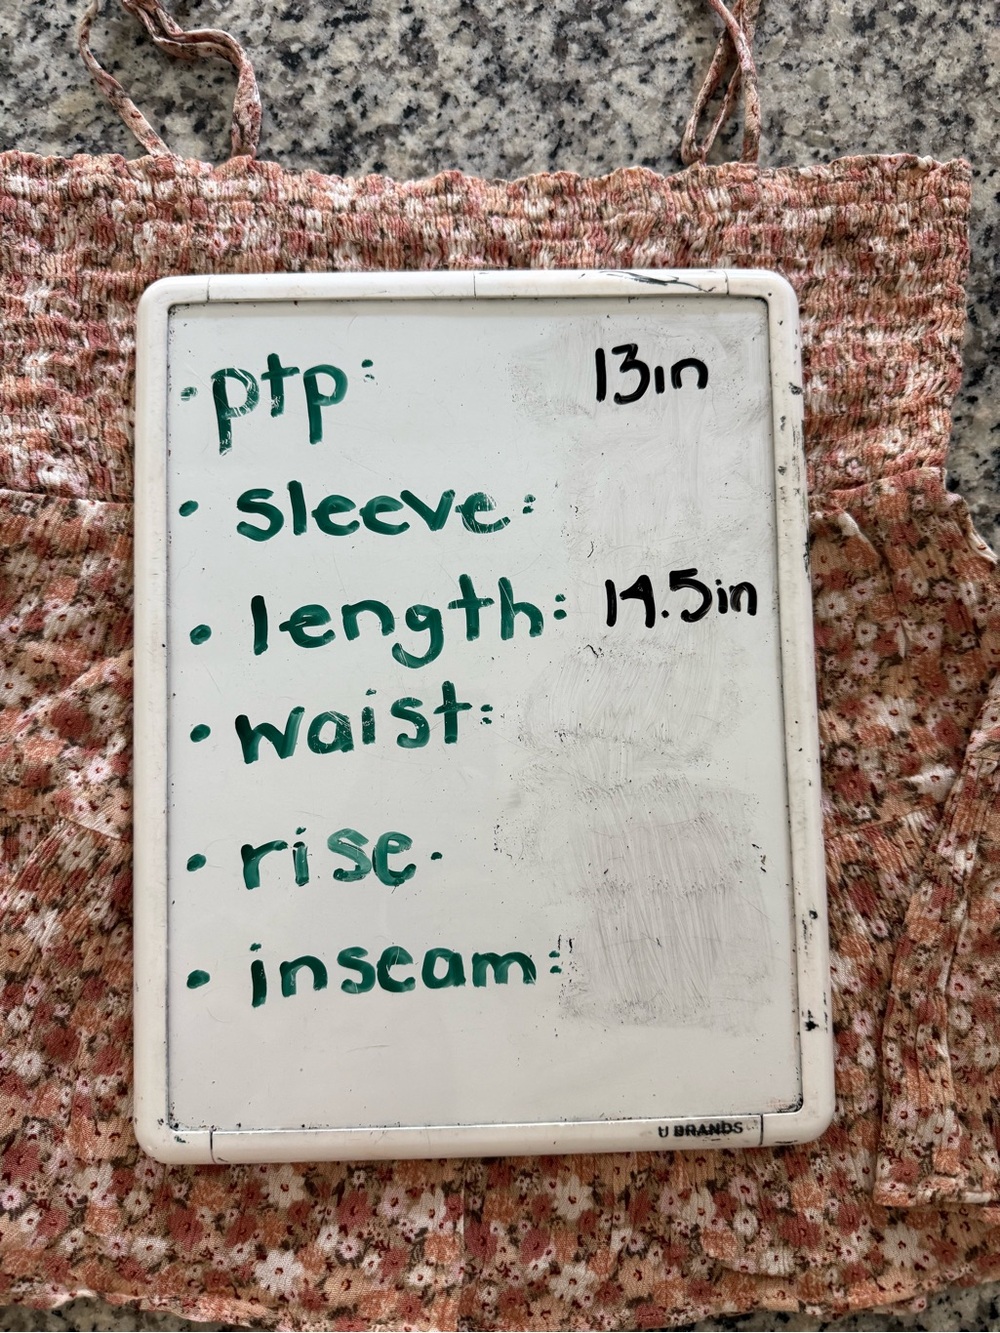 • ptp: 13in
• sleeve:
• length: 14.5in
• waist:
• rise.
• inseam:
U BRANDS